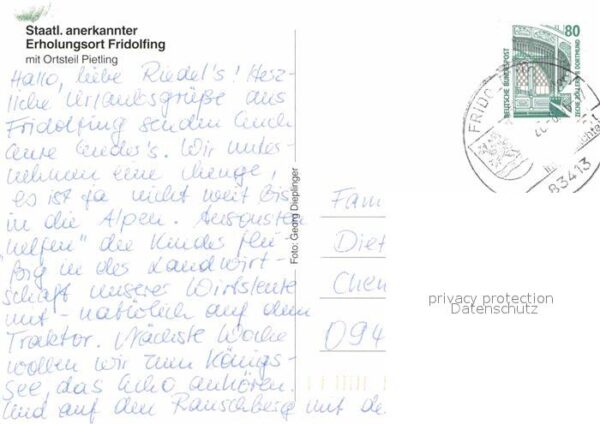 Staatl. anerkannter
Erholungsort Fridolfing
mit Ortsteil Pietling
Hallo, liebe Riedel's! Herz-
liche Urlaubsgrüße aus
Fridolfing senden Euch
Eure Ender's. Wir unter-
nehmen eine Menge,
es ist ja nicht weit bis
in die Alpen. Ansonsten
"helfen" die Kinder flei-
ßig in der Landwirt-
schaft unserer Wirtsleute
mit - natürlich auf dem
Traktor. Nächste Woche
wollen wir zum Königs-
see, das Echo anhören.
Und auf den Rauschberg mit de
Foto: Georg Dieplinger
80
DEUTSCHE BUNDESPOST
ZECHE ZOLLERN II DORTMUND
FRIDO
83413
Fam
Diet
Chem
094
privacy protection
Datenschutz